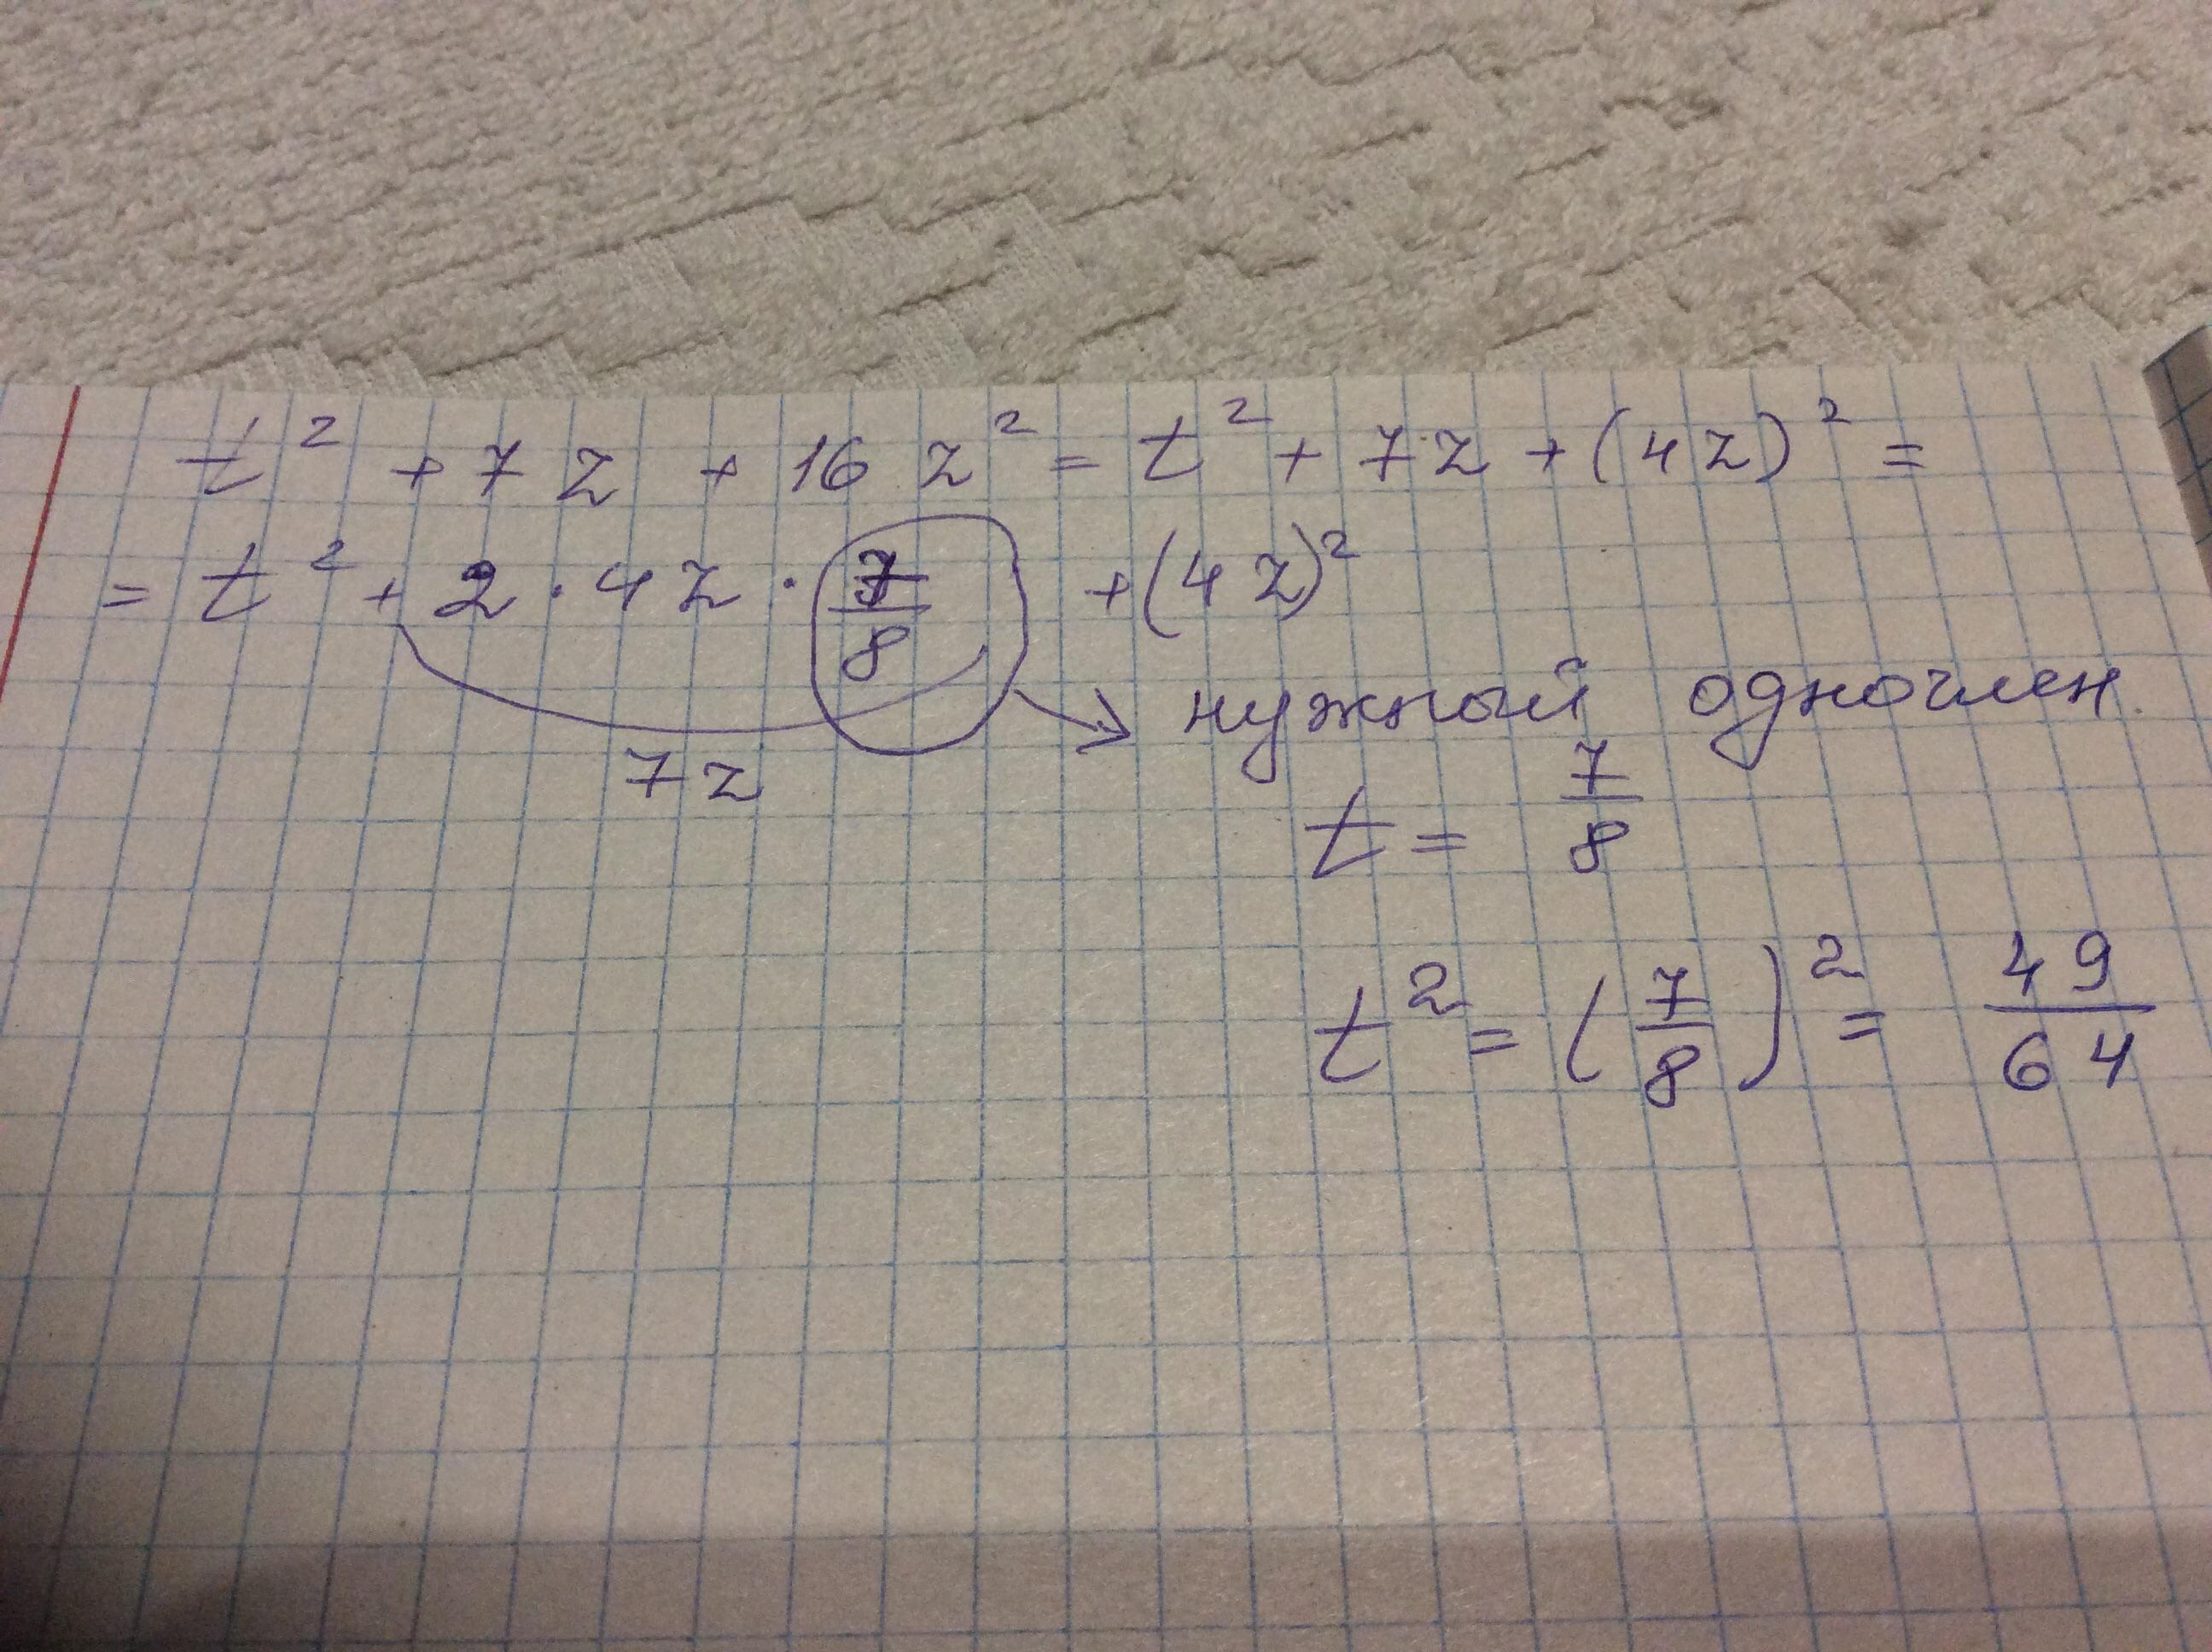 t² + 7z + 16z² = t² + 7z + (4z)² =
= t² + 2 · 4z · 7/8 + (4z)²
7z
нужный одночлен
t = 7/8
t² = (7/8)² = 49/64